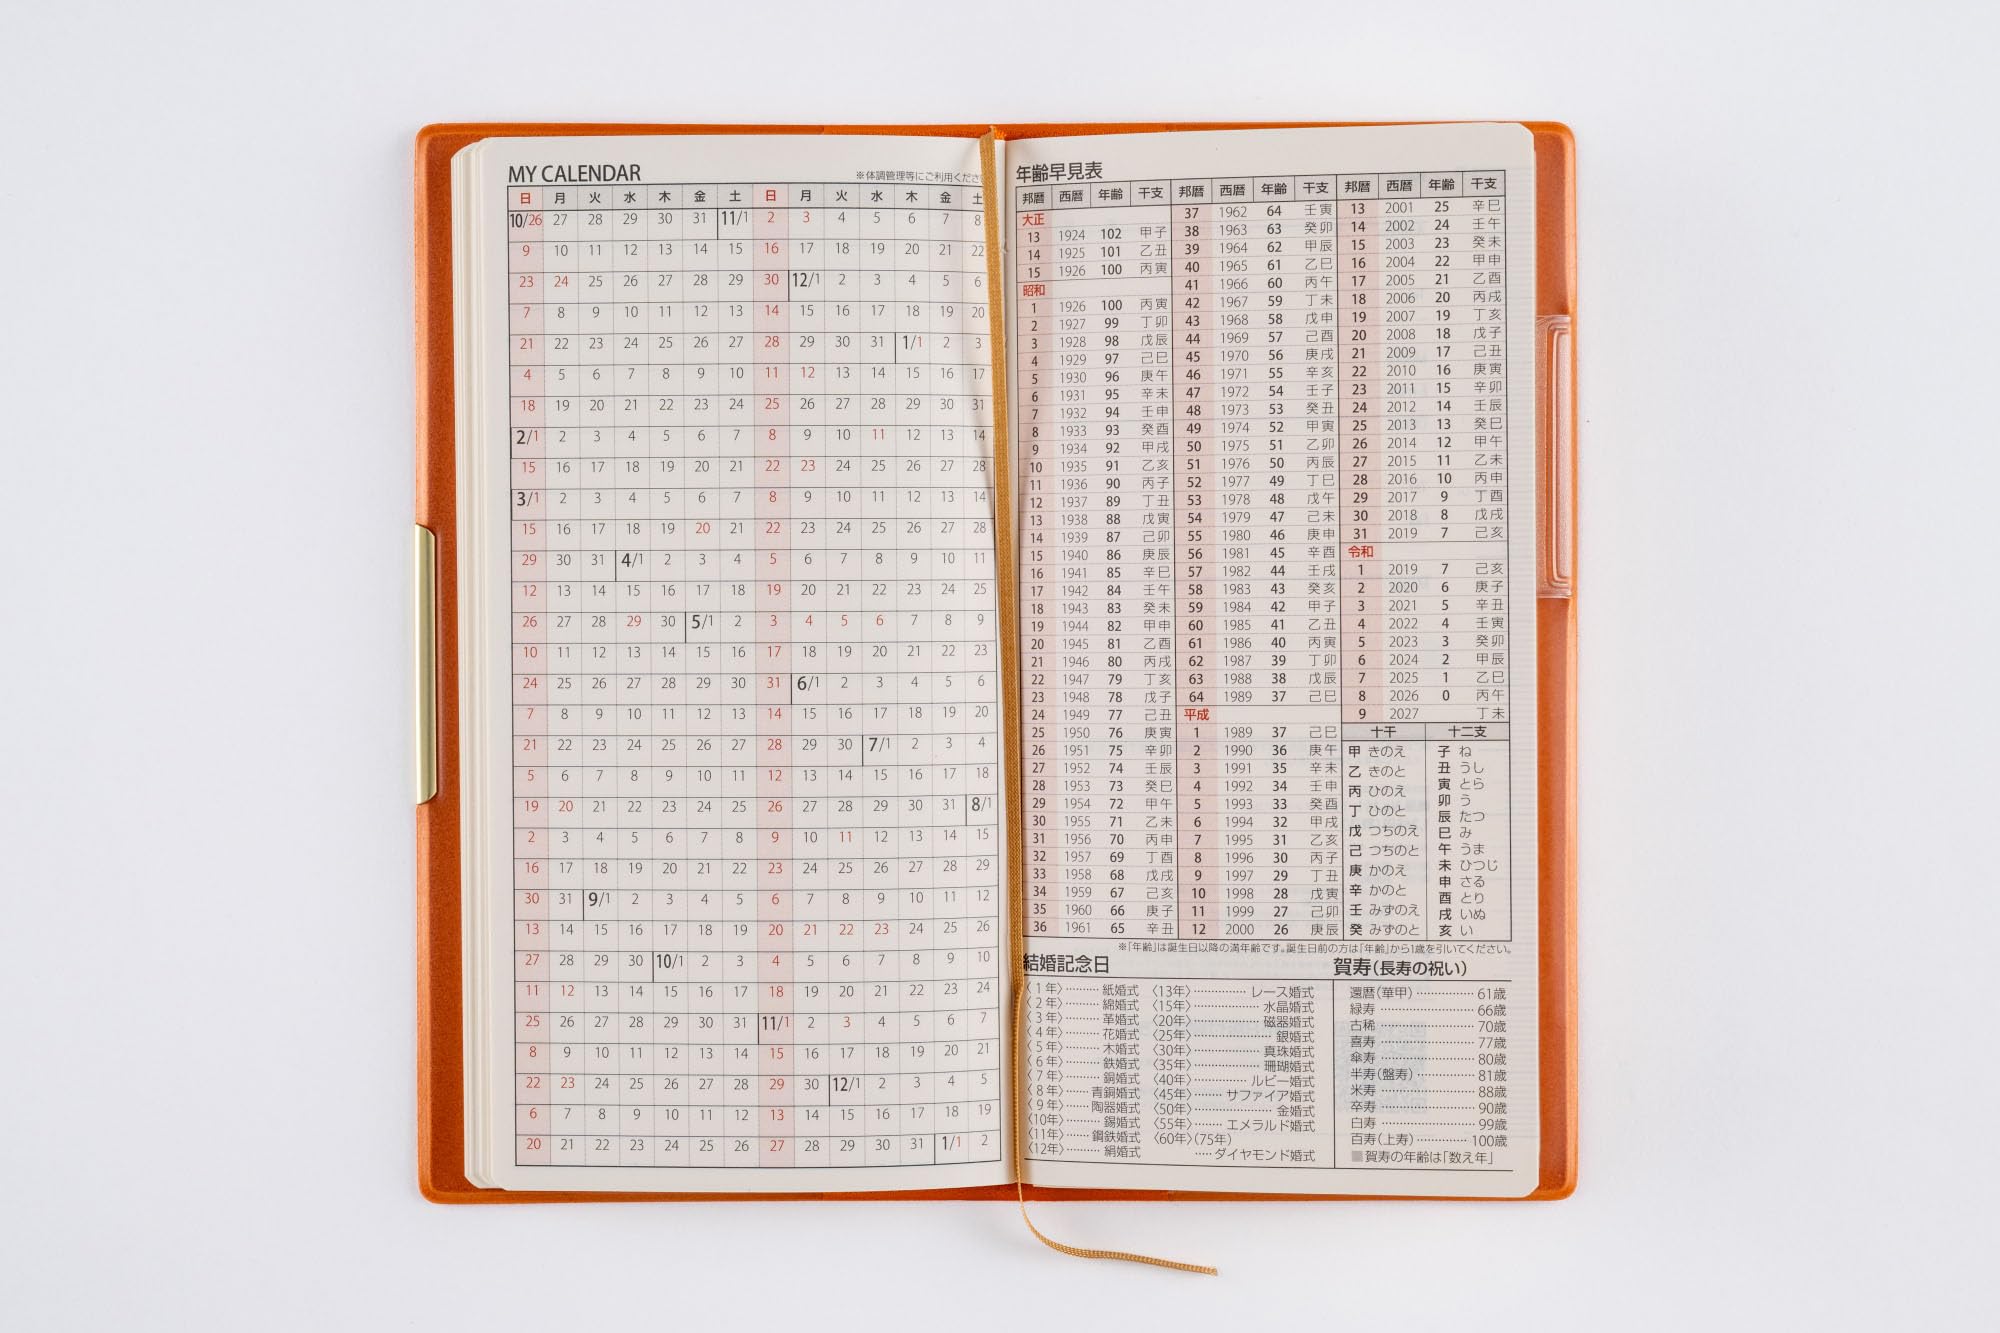 MY CALENDAR
※体調管理等にご利用くださ
日 月 火 水 木 金 土 日 月 火 水 木 金 土
10/26 27 28 29 30 31 11/1 2 3 4 5 6 7 8
9 10 11 12 13 14 15 16 17 18 19 20 21 22
23 24 25 26 27 28 29 30 12/1 2 3 4 5 6
7 8 9 10 11 12 13 14 15 16 17 18 19 20
21 22 23 24 25 26 27 28 29 30 31 1/1 2 3
4 5 6 7 8 9 10 11 12 13 14 15 16 17
18 19 20 21 22 23 24 25 26 27 28 29 30 31
2/1 2 3 4 5 6 7 8 9 10 11 12 13 14
15 16 17 18 19 20 21 22 23 24 25 26 27 28
3/1 2 3 4 5 6 7 8 9 10 11 12 13 14
15 16 17 18 19 20 21 22 23 24 25 26 27 28
29 30 31 4/1 2 3 4 5 6 7 8 9 10 11
12 13 14 15 16 17 18 19 20 21 22 23 24 25
26 27 28 29 30 5/1 2 3 4 5 6 7 8 9
10 11 12 13 14 15 16 17 18 19 20 21 22 23
24 25 26 27 28 29 30 31 6/1 2 3 4 5 6
7 8 9 10 11 12 13 14 15 16 17 18 19 20
21 22 23 24 25 26 27 28 29 30 7/1 2 3 4
5 6 7 8 9 10 11 12 13 14 15 16 17 18
19 20 21 22 23 24 25 26 27 28 29 30 31 8/1
2 3 4 5 6 7 8 9 10 11 12 13 14 15
16 17 18 19 20 21 22 23 24 25 26 27 28 29
30 31 9/1 2 3 4 5 6 7 8 9 10 11 12
13 14 15 16 17 18 19 20 21 22 23 24 25 26
27 28 29 30 10/1 2 3 4 5 6 7 8 9 10
11 12 13 14 15 16 17 18 19 20 21 22 23 24
25 26 27 28 29 30 31 11/1 2 3 4 5 6 7
8 9 10 11 12 13 14 15 16 17 18 19 20 21
22 23 24 25 26 27 28 29 30 12/1 2 3 4 5
6 7 8 9 10 11 12 13 14 15 16 17 18 19
20 21 22 23 24 25 26 27 28 29 30 31 1/1 2
年齢早見表
邦暦 西暦 年齢 干支
大正
13 1924 102 甲子
14 1925 101 乙丑
15 1926 100 丙寅
昭和
1 1926 100 丙寅
2 1927 99 丁卯
3 1928 98 戊辰
4 1929 97 己巳
5 1930 96 庚午
6 1931 95 辛未
7 1932 94 壬申
8 1933 93 癸酉
9 1934 92 甲戌
10 1935 91 乙亥
11 1936 90 丙子
12 1937 89 丁丑
13 1938 88 戊寅
14 1939 87 己卯
15 1940 86 庚辰
16 1941 85 辛巳
17 1942 84 壬午
18 1943 83 癸未
19 1944 82 甲申
20 1945 81 乙酉
21 1946 80 丙戌
22 1947 79 丁亥
23 1948 78 戊子
24 1949 77 己丑
25 1950 76 庚寅
26 1951 75 辛卯
27 1952 74 壬辰
28 1953 73 癸巳
29 1954 72 甲午
30 1955 71 乙未
31 1956 70 丙申
32 1957 69 丁酉
33 1958 68 戊戌
34 1959 67 己亥
35 1960 66 庚子
36 1961 65 辛丑
邦暦 西暦 年齢 干支
37 1962 64 壬寅
38 1963 63 癸卯
39 1964 62 甲辰
40 1965 61 乙巳
41 1966 60 丙午
42 1967 59 丁未
43 1968 58 戊申
44 1969 57 己酉
45 1970 56 庚戌
46 1971 55 辛亥
47 1972 54 壬子
48 1973 53 癸丑
49 1974 52 甲寅
50 1975 51 乙卯
51 1976 50 丙辰
52 1977 49 丁巳
53 1978 48 戊午
54 1979 47 己未
55 1980 46 庚申
56 1981 45 辛酉
57 1982 44 壬戌
58 1983 43 癸亥
59 1984 42 甲子
60 1985 41 乙丑
61 1986 40 丙寅
62 1987 39 丁卯
63 1988 38 戊辰
64 1989 37 己巳
平成
1 1989 37 己巳
2 1990 36 庚午
3 1991 35 辛未
4 1992 34 壬申
5 1993 33 癸酉
6 1994 32 甲戌
7 1995 31 乙亥
8 1996 30 丙子
9 1997 29 丁丑
10 1998 28 戊寅
11 1999 27 己卯
12 2000 26 庚辰
邦暦 西暦 年齢 干支
13 2001 25 辛巳
14 2002 24 壬午
15 2003 23 癸未
16 2004 22 甲申
17 2005 21 乙酉
18 2006 20 丙戌
19 2007 19 丁亥
20 2008 18 戊子
21 2009 17 己丑
22 2010 16 庚寅
23 2011 15 辛卯
24 2012 14 壬辰
25 2013 13 癸巳
26 2014 12 甲午
27 2015 11 乙未
28 2016 10 丙申
29 2017 9 丁酉
30 2018 8 戊戌
31 2019 7 己亥
令和
1 2019 7 己亥
2 2020 6 庚子
3 2021 5 辛丑
4 2022 4 壬寅
5 2023 3 癸卯
6 2024 2 甲辰
7 2025 1 乙巳
8 2026 0 丙午
9 2027 丁未
十干
甲 きのえ
乙 きのと
丙 ひのえ
丁 ひのと
戊 つちのえ
己 つちのと
庚 かのえ
辛 かのと
壬 みずのえ
癸 みずのと
十二支
子 ね
丑 うし
寅 とら
卯 う
辰 たつ
巳 み
午 うま
未 ひつじ
申 さる
酉 とり
戌 いぬ
亥 い
※「年齢」は誕生日以降の満年齢です。誕生日前の方は「年齢」から1歳を引いてください。
結婚記念日
〈1年〉………紙婚式
〈2年〉………綿婚式
〈3年〉………革婚式
〈4年〉………花婚式
〈5年〉………木婚式
〈6年〉………鉄婚式
〈7年〉………銅婚式
〈8年〉……青銅婚式
〈9年〉……陶器婚式
〈10年〉………錫婚式
〈11年〉……鋼鉄婚式
〈12年〉………絹婚式
〈13年〉……………レース婚式
〈15年〉………………水晶婚式
〈20年〉………………磁器婚式
〈25年〉…………………銀婚式
〈30年〉………………真珠婚式
〈35年〉………………珊瑚婚式
〈40年〉……………ルビー婚式
〈45年〉………サファイア婚式
〈50年〉…………………金婚式
〈55年〉………エメラルド婚式
〈60年〉〈75年〉
……ダイヤモンド婚式
賀寿(長寿の祝い)
還暦(華甲)………………61歳
緑寿………………………66歳
古稀………………………70歳
喜寿………………………77歳
傘寿………………………80歳
半寿(盤寿)………………81歳
米寿………………………88歳
卒寿………………………90歳
白寿………………………99歳
百寿(上寿)……………100歳
■賀寿の年齢は「数え年」